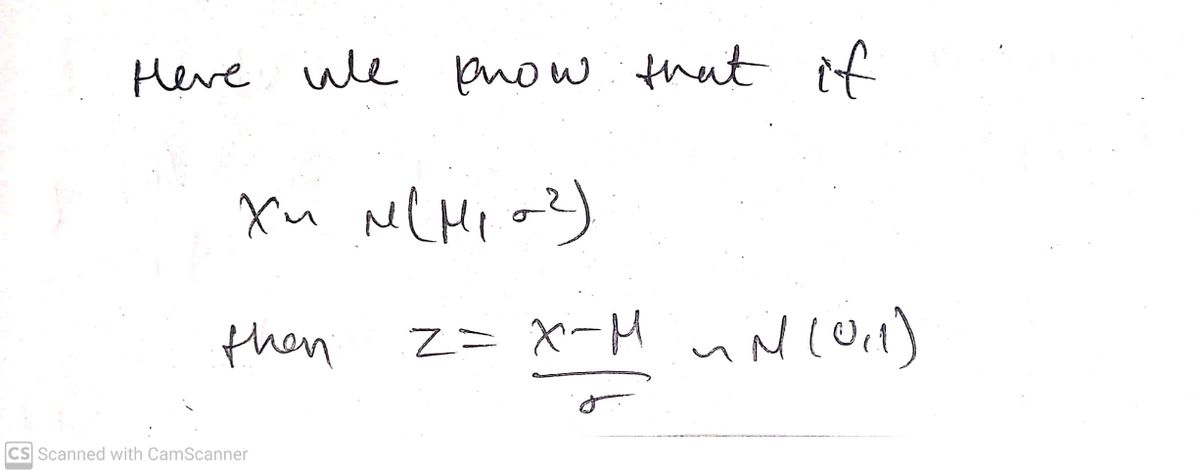 Here we know that if
X ~ N(μ, σ²)
then Z = X-μ ~ N(0,1)
σ
CS Scanned with CamScanner